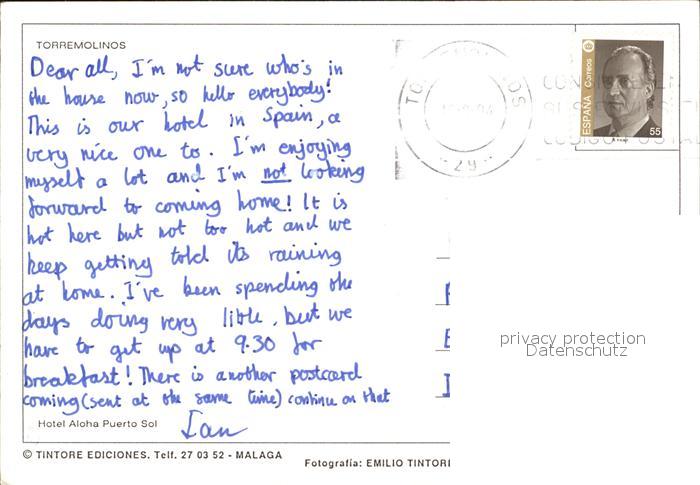 TORREMOLINOS
Dear all, I'm not sure who's in
the house now, so hello everybody!
This is our hotel in Spain, a
very nice one to. I'm enjoying
myself a lot and I'm not looking
forward to coming home! It is
hot here but not too hot and we
keep getting told its raining
at home. I've been spending the
days doing very little, but we
have to get up at 9.30 for
breakfast! There is another postcard
coming (sent at the same time) continue on that
Ian
Hotel Aloha Puerto Sol
© TINTORE EDICIONES. Telf. 27 03 52 - MALAGA
Fotografía: EMILIO TINTORE
ESPAÑA Correos
55
29
privacy protection
Datenschutz